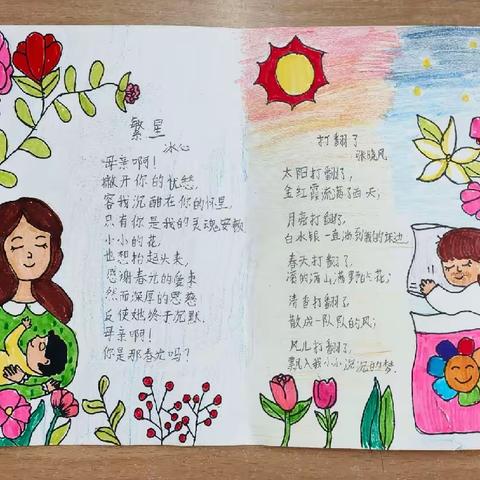 繁星
冰心
母亲啊!
撇开你的忧愁,
容我沉酣在你的怀里,
只有你是我的灵魂安顿
小小的花,
也想抬起头来,
感谢春光的爱
然而深厚的恩慈
反使她终于沉默.
母亲啊!
你是那春光吗?
打翻了
张晓风
太阳打翻了,
金红霞流满了西天,
月亮打翻了,
白水银一直淌到我的床边
春天打翻了,
满山满野的花;
清香打翻了
散成一队队的风;
风儿打翻了,
飘入我小小沉沉的梦.